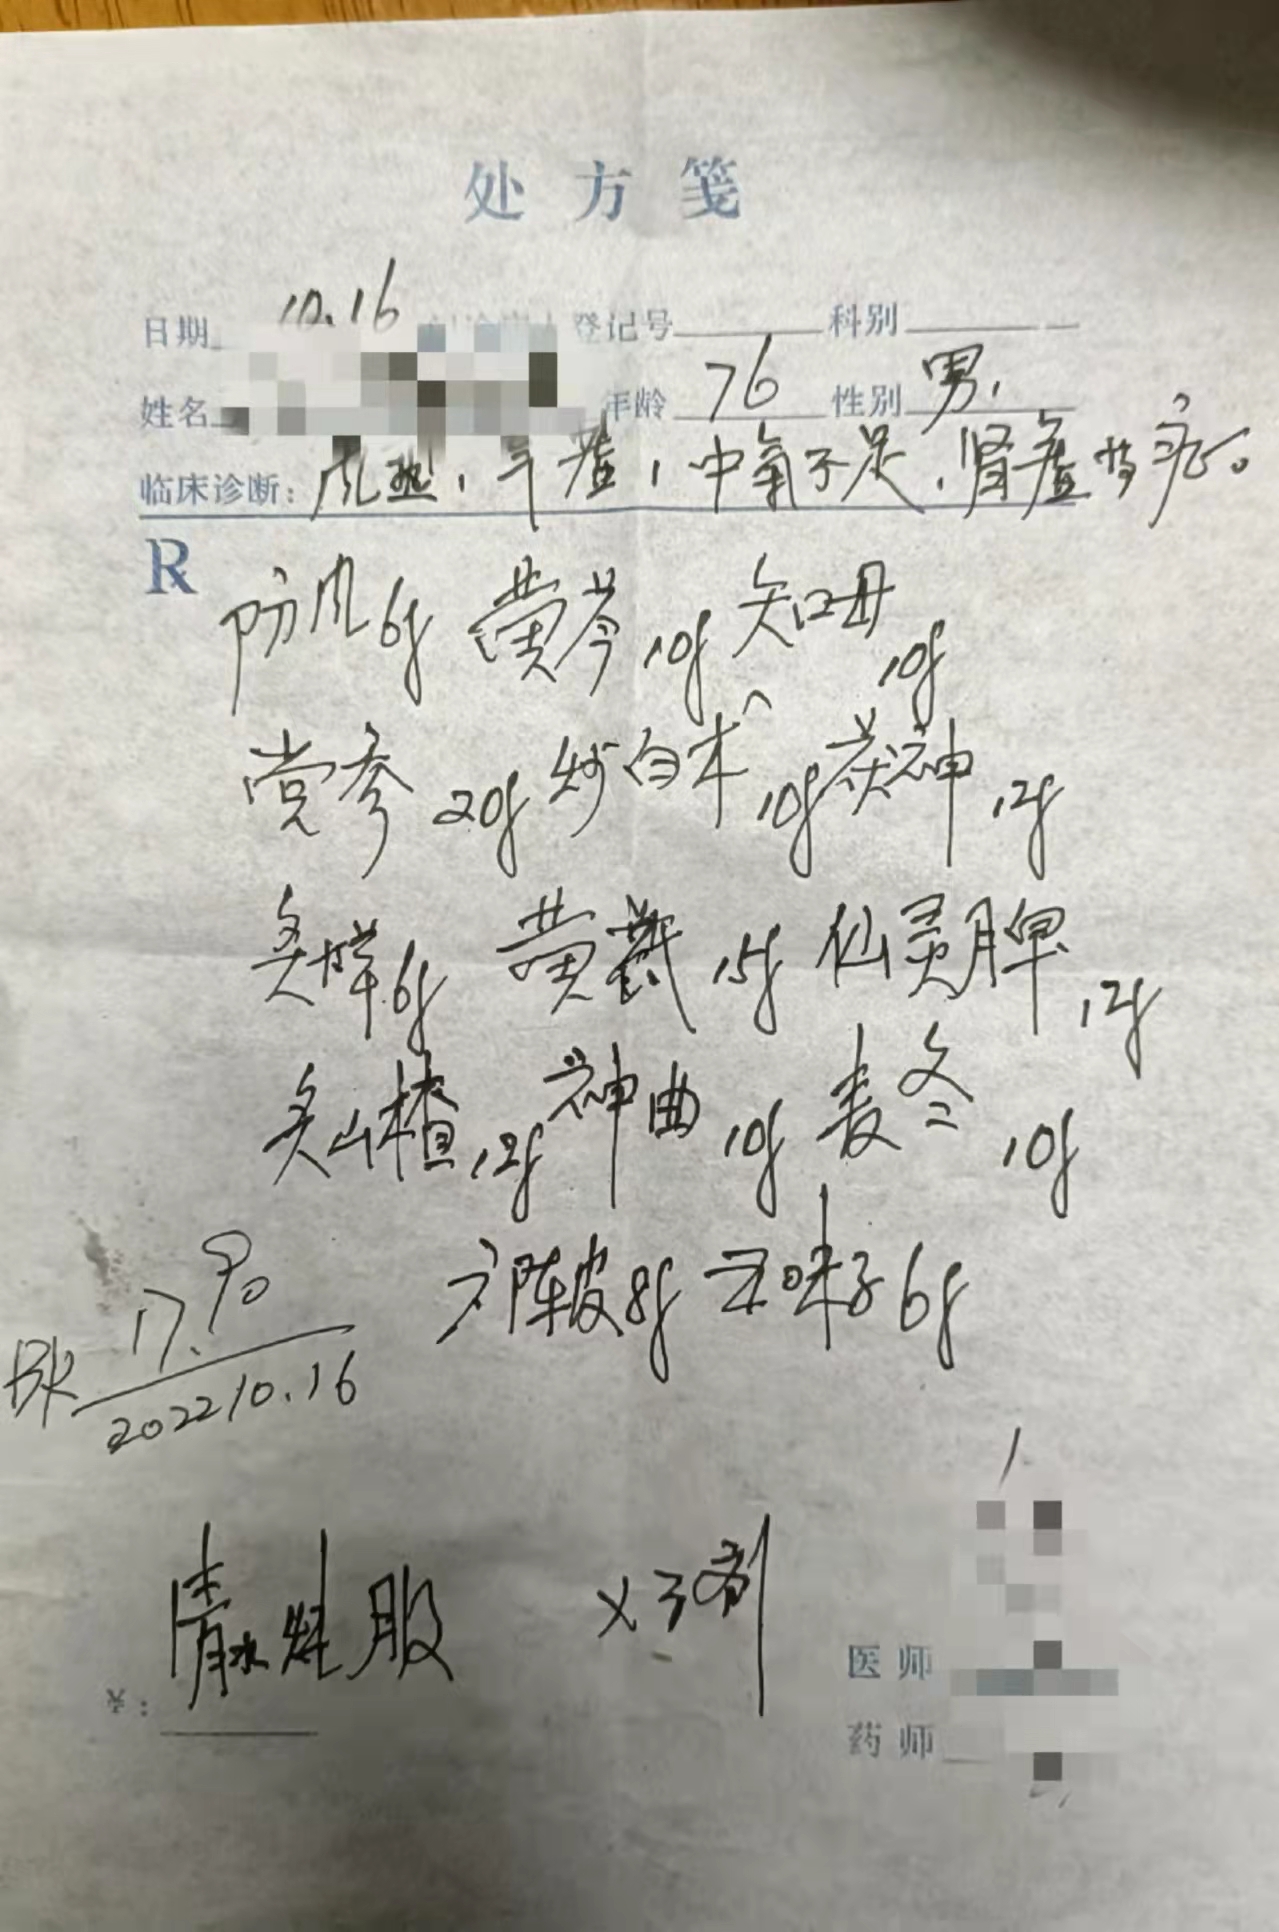 处方笺
日期 10.16 登记号 科别
姓名 年龄 76 性别 男.
临床诊断: 风热,气虚,中气不足,肾虚
R
防风6g 黄芩10g 知母10g
党参20g 炒白术10g 茯神12g
炙草6g 黄芪15g 仙灵脾12g
炙山楂12g 神曲10g 麦冬10g
陈皮8g 五味子6g
17.90
2022 10.16
清水煎服 ×3剂
医师
¥:
药师